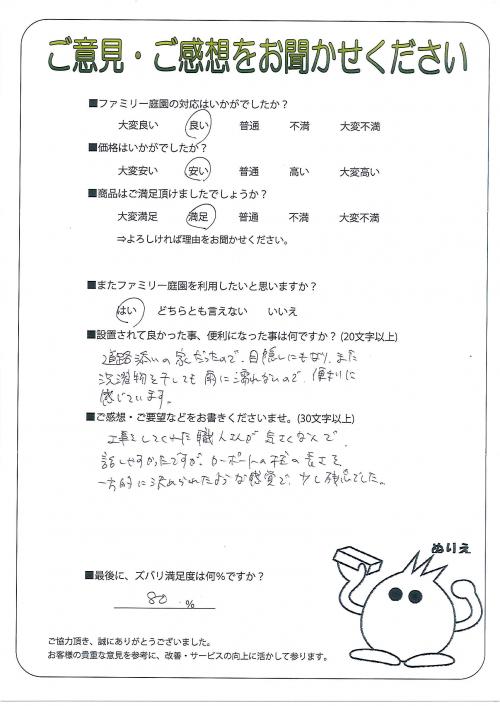 ご意見・ご感想をお聞かせください
■ファミリー庭園の対応はいかがでしたか？
大変良い 良い 普通 不満 大変不満
■価格はいかがでしたか？
大変安い 安い 普通 高い 大変高い
■商品はご満足頂けましたでしょうか？
大変満足 満足 普通 不満 大変不満
⇒よろしければ理由をお聞かせください。
■またファミリー庭園を利用したいと思いますか？
はい どちらとも言えない いいえ
■設置されて良かった事、便利になった事は何ですか？(20文字以上)
道路添いの家だったので、目隠しにもなり、また
洗濯物を干しても雨に濡れないので、便利に
感じています。
■ご感想・ご要望などをお書きくださいませ。(30文字以上)
工事をしてくれた職人さんが気さくな人で、
話しやすかったですが、カーポートの柱の長さを
一方的に決められたような感覚で、少し残念でした。
ぬりえ
■最後に、ズバリ満足度は何％ですか？
80 ％
ご協力頂き、誠にありがとうございました。
お客様の貴重な意見を参考に、改善・サービスの向上に活かして参ります。